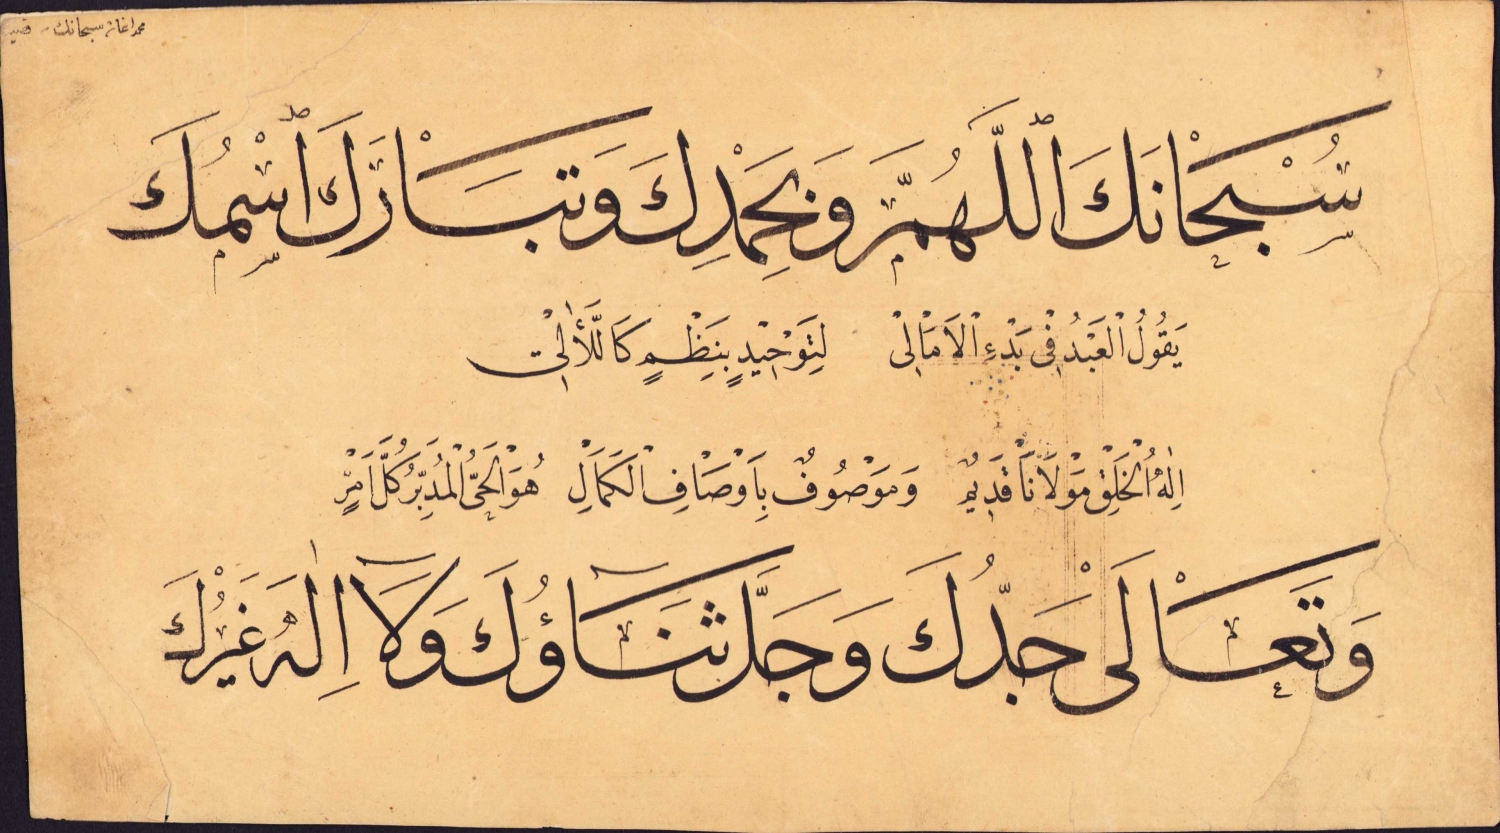 سُبْحَانَكَ اللَّهُمَّ وَبِحَمْدِكَ وَتَبَارَكَ اسْمُكَ
يَقُولُ الْعَبْدُ فِي بَدْءِ الْاَمَالِي لِتَوْحِيدٍ بِنَظْمٍ كَاللَّآلِي
اِلٰهُ الْخَلْقِ مَوْلَانَا قَدِيمٌ وَمَوْصُوفٌ بِاَوْصَافِ الْكَمَالِ هُوَ الْحَيُّ الْمُدَبِّرُ كُلَّ اَمْرٍ
وَتَعَالَى جَدُّكَ وَجَلَّ ثَنَاؤُكَ وَلَا اِلٰهَ غَيْرُكَ